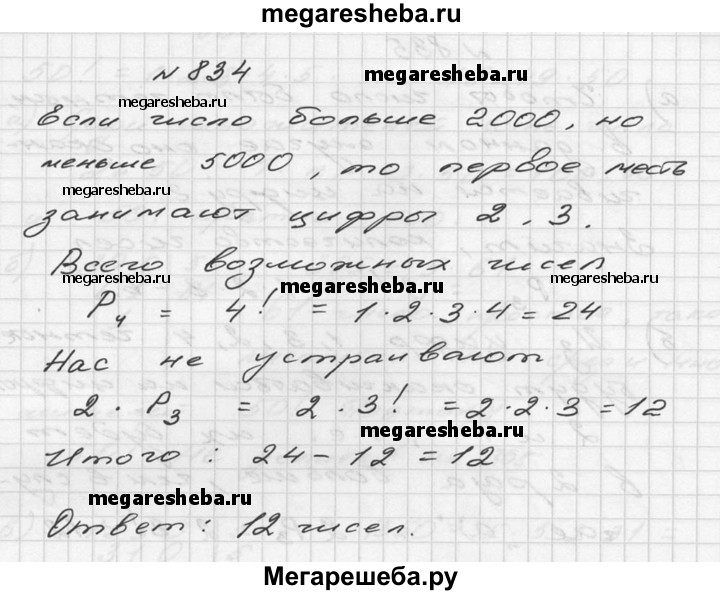 megaresheba.ru
№ 834
megaresheba.ru
megaresheba.ru
Если число больше 2000, но
меньше 5000, то первое месть
megaresheba.ru
занимают цифры 2, 3.
Всего возможных чисел
megaresheba.ru
megaresheba.ru
P₄ = 4! = 1·2·3·4 = 24
Нас не устраивают
2 · P₃ = 2 · 3! = 2·2·3 = 12
megaresheba.ru
Итого: 24 - 12 = 12
megaresheba.ru
Ответ: 12 чисел.
Мегарешеба.ру